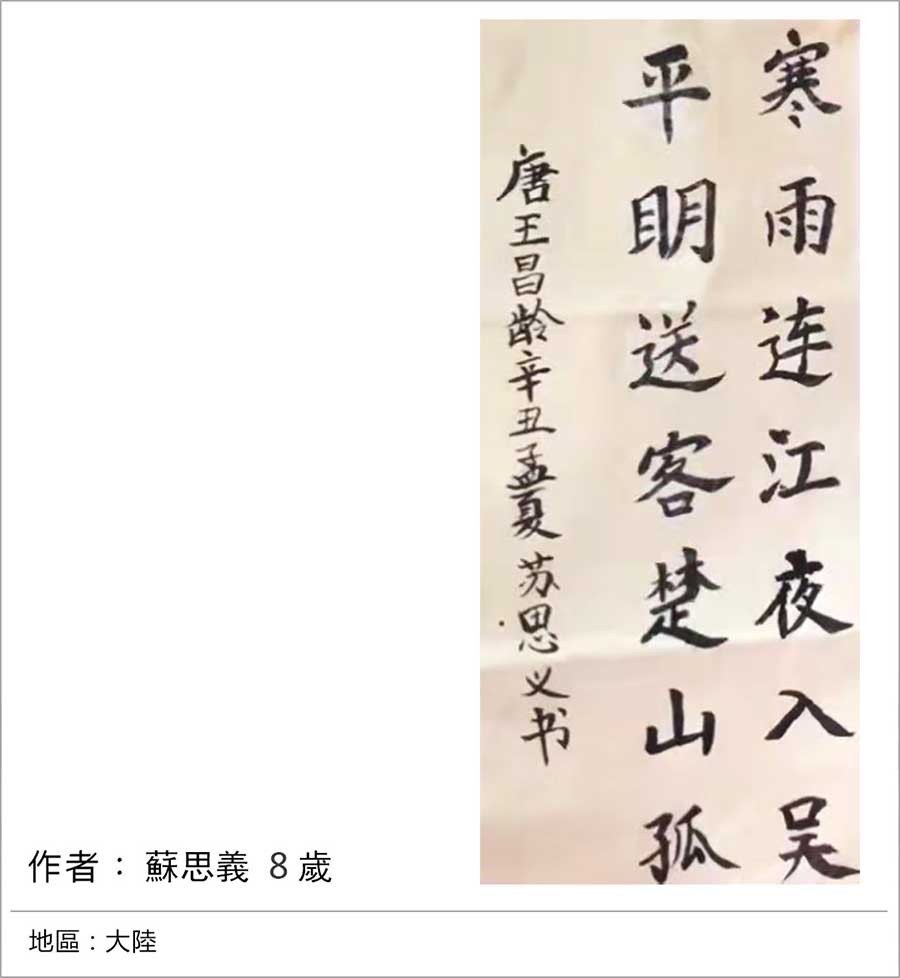 寒雨连江夜入吴
平明送客楚山孤
唐王昌龄辛丑孟夏苏思义书
作者：蘇思義 8歲
地區：大陸